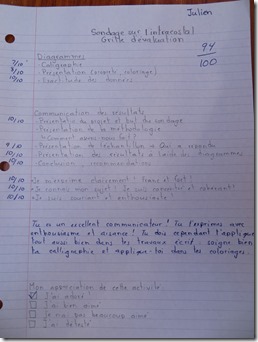 Julien
Sondage sur l'intracostal
Grille d'évaluation
94
100
Diagrammes
7/10 - Calligraphie
8/10 - Présentation (soin, coloriage)
10/10 - Exactitude des données
Communication des résultats
10/10 - Présentation du projet et but du sondage
- Présentation de la méthodologie
9/10 - Présentation de l'échantillon → Qui a répondu
10/10 - Présentation des résultats à l'aide des diagrammes
10/10 - Conclusion
10/10 • Je m'exprime clairement! Franc et fort!
10/10 • Je connais mon sujet! Je suis
10/10 • Je suis souriant et enthousiaste!
Tu es un excellent communicateur! Tu t'exprimes avec
enthousiasme et aisance! Tu dois cependant t'appliquer
tout aussi bien dans les travaux écrits, soigne bien
ta calligraphie et applique-toi dans les coloriages.
Mon appréciation de cette activité:
J'ai adoré!
J'ai bien aimé
Je n'ai pas beaucoup aimé
J'ai détesté